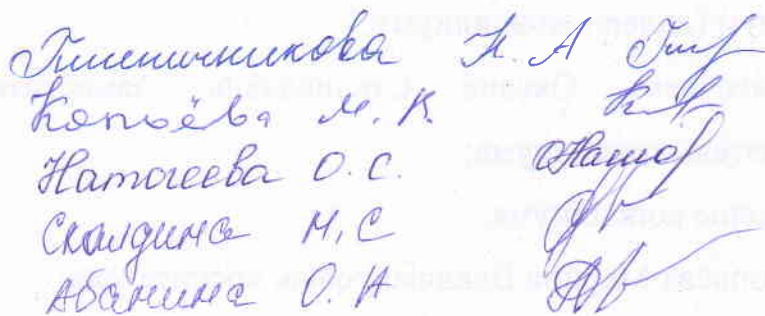 Пшеничникова Н. А
Копьёва М. К.
Натогеева О. С.
Скалдина М, С
Абанина О. Н